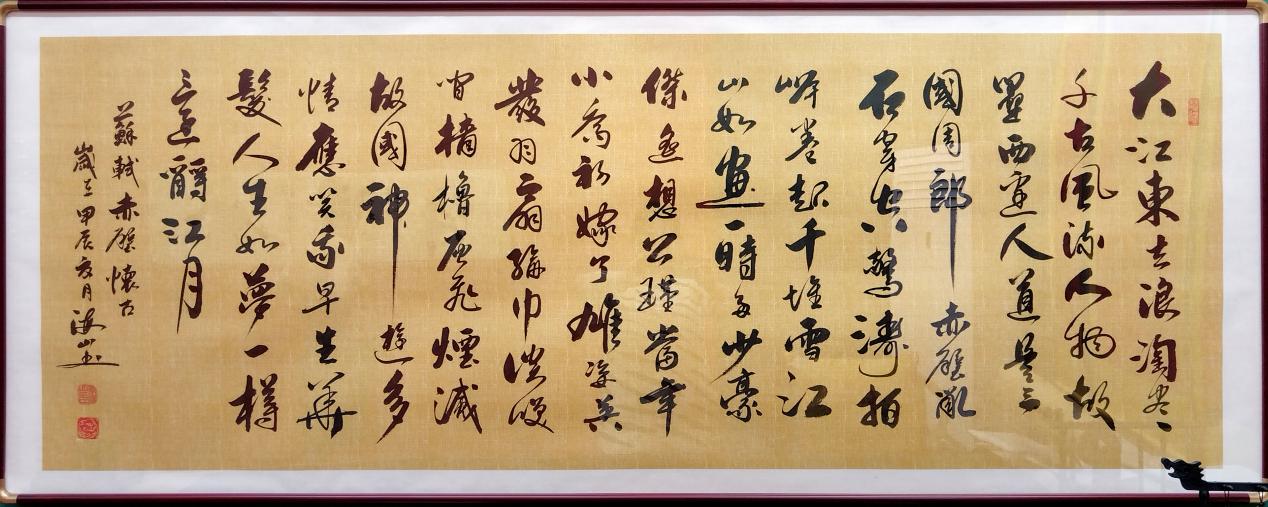 大江東去浪淘尽
千古風流人物故
壘西邊人道是三
國周郎赤壁亂
石穿空驚濤拍
岸卷起千堆雪江
山如畫一時多少豪
傑遙想公瑾當年
小喬初嫁了雄姿英
發羽扇綸巾談笑
間檣櫓灰飛煙滅
故國神遊多
情應笑我早生華
髮人生如夢一樽
還酹江月
蘇軾赤壁懷古
歲在甲辰夏月海山書